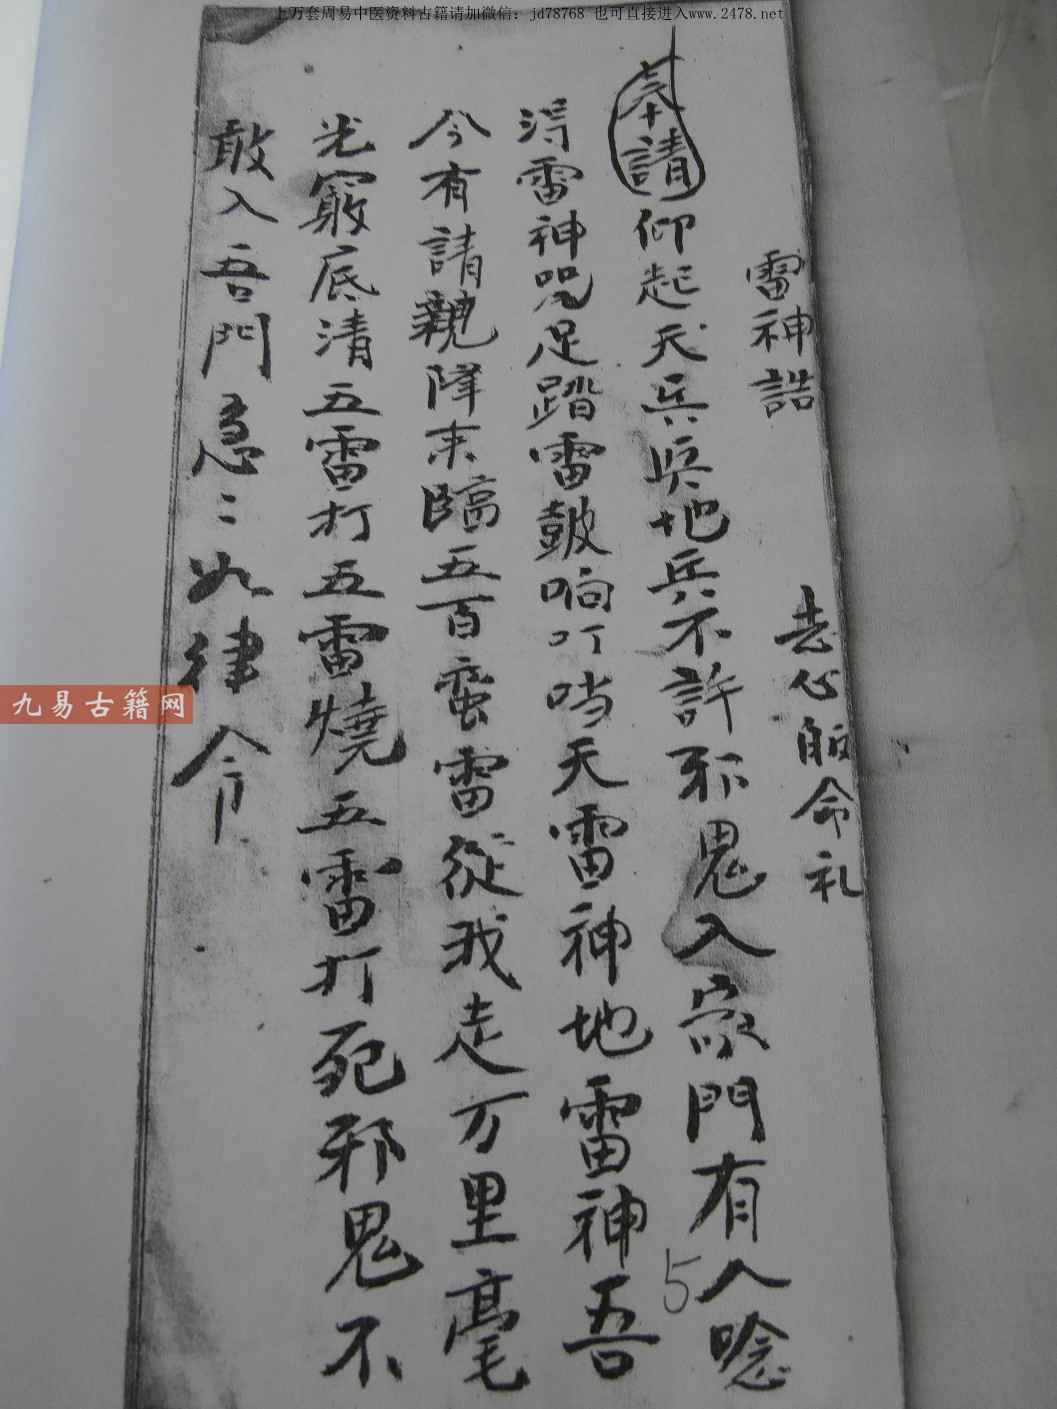 上万套周易中医资料古籍请加微信：jd78768 也可直接进入www.2478.net
雷神誥
志心皈命礼
奉請仰起天兵兵地兵不許邪鬼入家門有人唸
淂雷神咒足踏雷鼓响叮当天雷神地雷神吾
今有請親降来臨五百蛮雷從我走万里毫
光竅底清五雷打五雷燒五雷打死邪鬼不
敢入吾門急〻如律令
5
九易古籍网